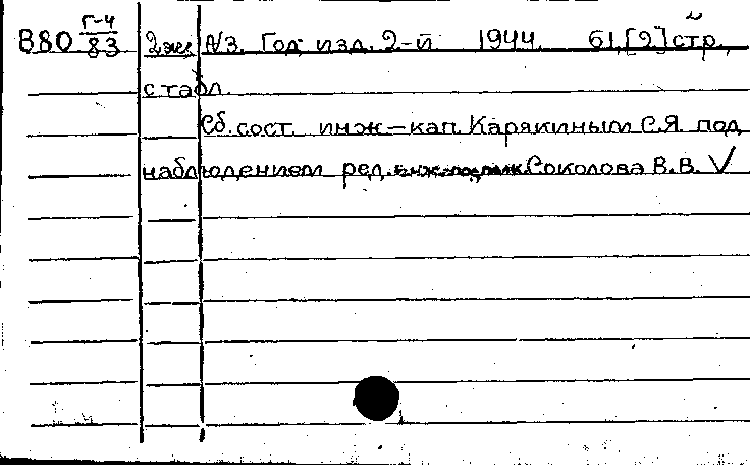 В80 Г-4/83 2 экз. №3. Год изд. 2-й 1944. 61, [2] стр.,
с табл.
Сб. сост. инж-кап. Карякиным С.Я. под
наблюдением ред. Соколова В.В. V